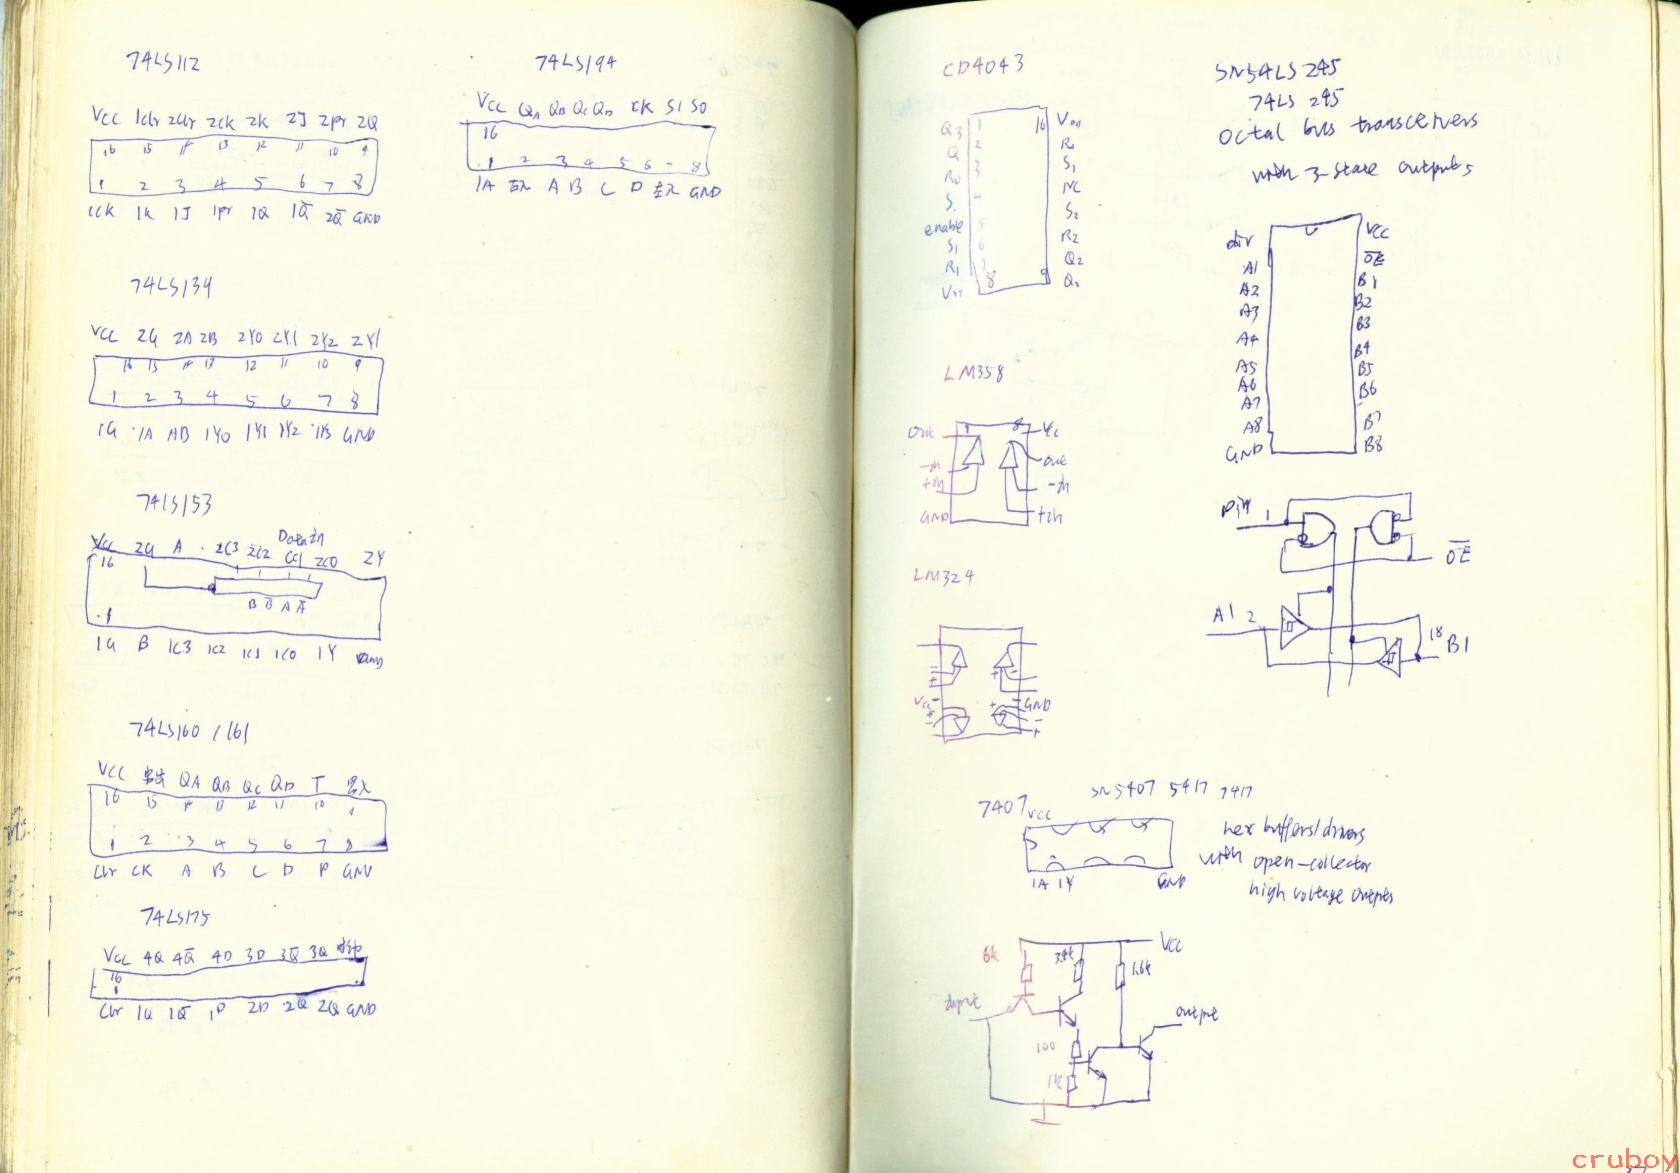 74LS112
VCC 1Clr 2Clr 2CK 2K 2J 2Pr 2Q
16 15 14 13 12 11 10 9
1 2 3 4 5 6 7 8
1CK 1K 1J 1Pr 1Q 1Q̅ 2Q̅ GND
74LS139
VCC 2G 2A 2B 2Y0 2Y1 2Y2 2Y1
16 15 14 13 12 11 10 9
1 2 3 4 5 6 7 8
1G 1A AB 1Y0 1Y1 1Y2 1Y3 GND
74LS153
Data in
VCC 2G A 2C3 2C2 CC1 2C0 2Y
16
B B̅ A A̅
1
1G B 1C3 1C2 1C1 1C0 1Y
74LS160 / 161
VCC 串出 QA QB QC QD T 置入
16 15 14 13 12 11 10 9
1 2 3 4 5 6 7 8
Clr CK A B C D P GND
74LS175
VCC 4Q 4Q̅ 4D 3D 3Q̅ 3Q 时钟
16
1
Clr 1Q 1Q̅ 1D 2D 2Q̅ 2Q GND
74LS194
VCC QA QB QC QD CK S1 S0
16
1 2 3 4 5 6 - 8
1A 右入 A B C D 左入 GND
CD4043
Q3 1 16 VDD
Q 2 R0
R0 3 S1
S. 4 NC
enable 5 S2
S1 6 R2
R1 7 Q2
8 9
LM358
Out 1 8 Vcc
-in out
+in -in
GND +in
LM324
- + + -
Vcc GND
+ - + - +
SN54LS245
74LS 245
octal bus transceivers
with 3-state outputs
dir VCC
A1 O̅E̅
A2 B1
A3 B2
A4 B3
A5 B4
A6 B5
A7 B6
A8 B7
GND B8
1
O̅E̅
A1 2
18 B1
7407 SN5407 5417 7417
VCC
hex buffers/drivers
with open-collector
high voltage outputs
1A 1Y GND
VCC
6k 1.6k
input
output
100
1k
cruboy